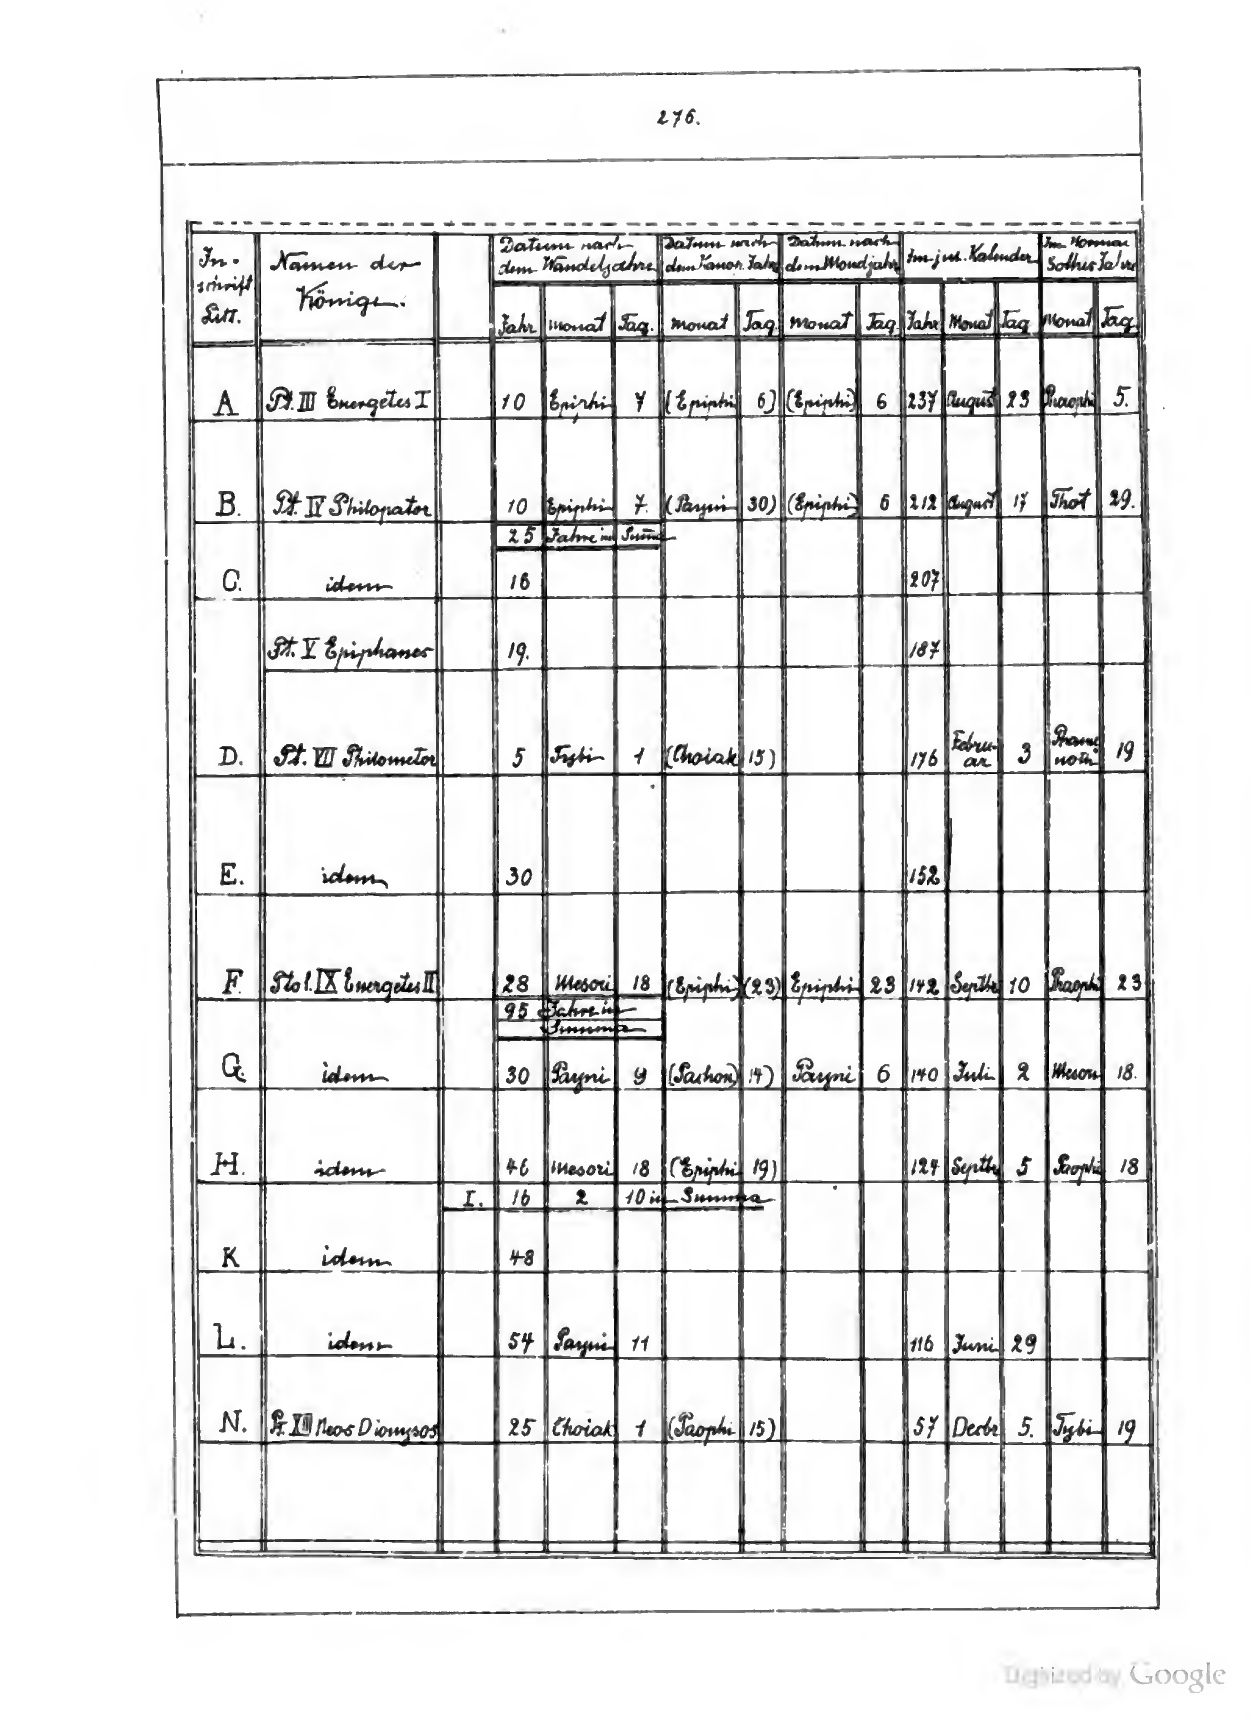 276.
In- Namen der Datum nach Datum nach Datum nach Im jul. Kalender Im Normal
schrift Könige. dem Wandeljahre dem Kanop. Jahre dem Mondjahre Sothis Jahre
Litt. Jahr Monat Tag. Monat Tag. Monat Tag. Jahr Monat Tag Monat Tag
A Pt. III Euergetes I 10 Epiphi 7 (Epiphi 6) (Epiphi) 6 237 August 23 Phaophi 5.
B. Pt. IV Philopator 10 Epiphi 7. (Payni 30) (Epiphi) 6 212 August 17 Thot 29.
25 Jahre in Summa
C. idem 16 207
Pt. V Epiphanes 19. 187
D. Pt. VII Philometor 5 Tybi 1 (Choiak 15) 176 Febru-ar 3 Phamenoth 19
E. idem 30 152
F. Ptol. IX Euergetes II 28 Mesori 18 (Epiphi) (23) Epiphi 23 142 Septbr 10 Phaophi 23
95 Jahre in
Summa
G. idem 30 Payni 9 (Pachon) 14) Payni 6 140 Juli 2 Mesori 18.
H. idem 46 Mesori 18 (Epiphi 19) 124 Septbr 5 Paophi 18
I. 16 2 10 in Summa
K idem 48
L. idem 54 Payni 11 116 Juni 29
N. Pt. XIII Neos Dionysos 25 Choiak 1 (Paophi 15) 57 Decbr 5. Tybi 19
Digitized by Google